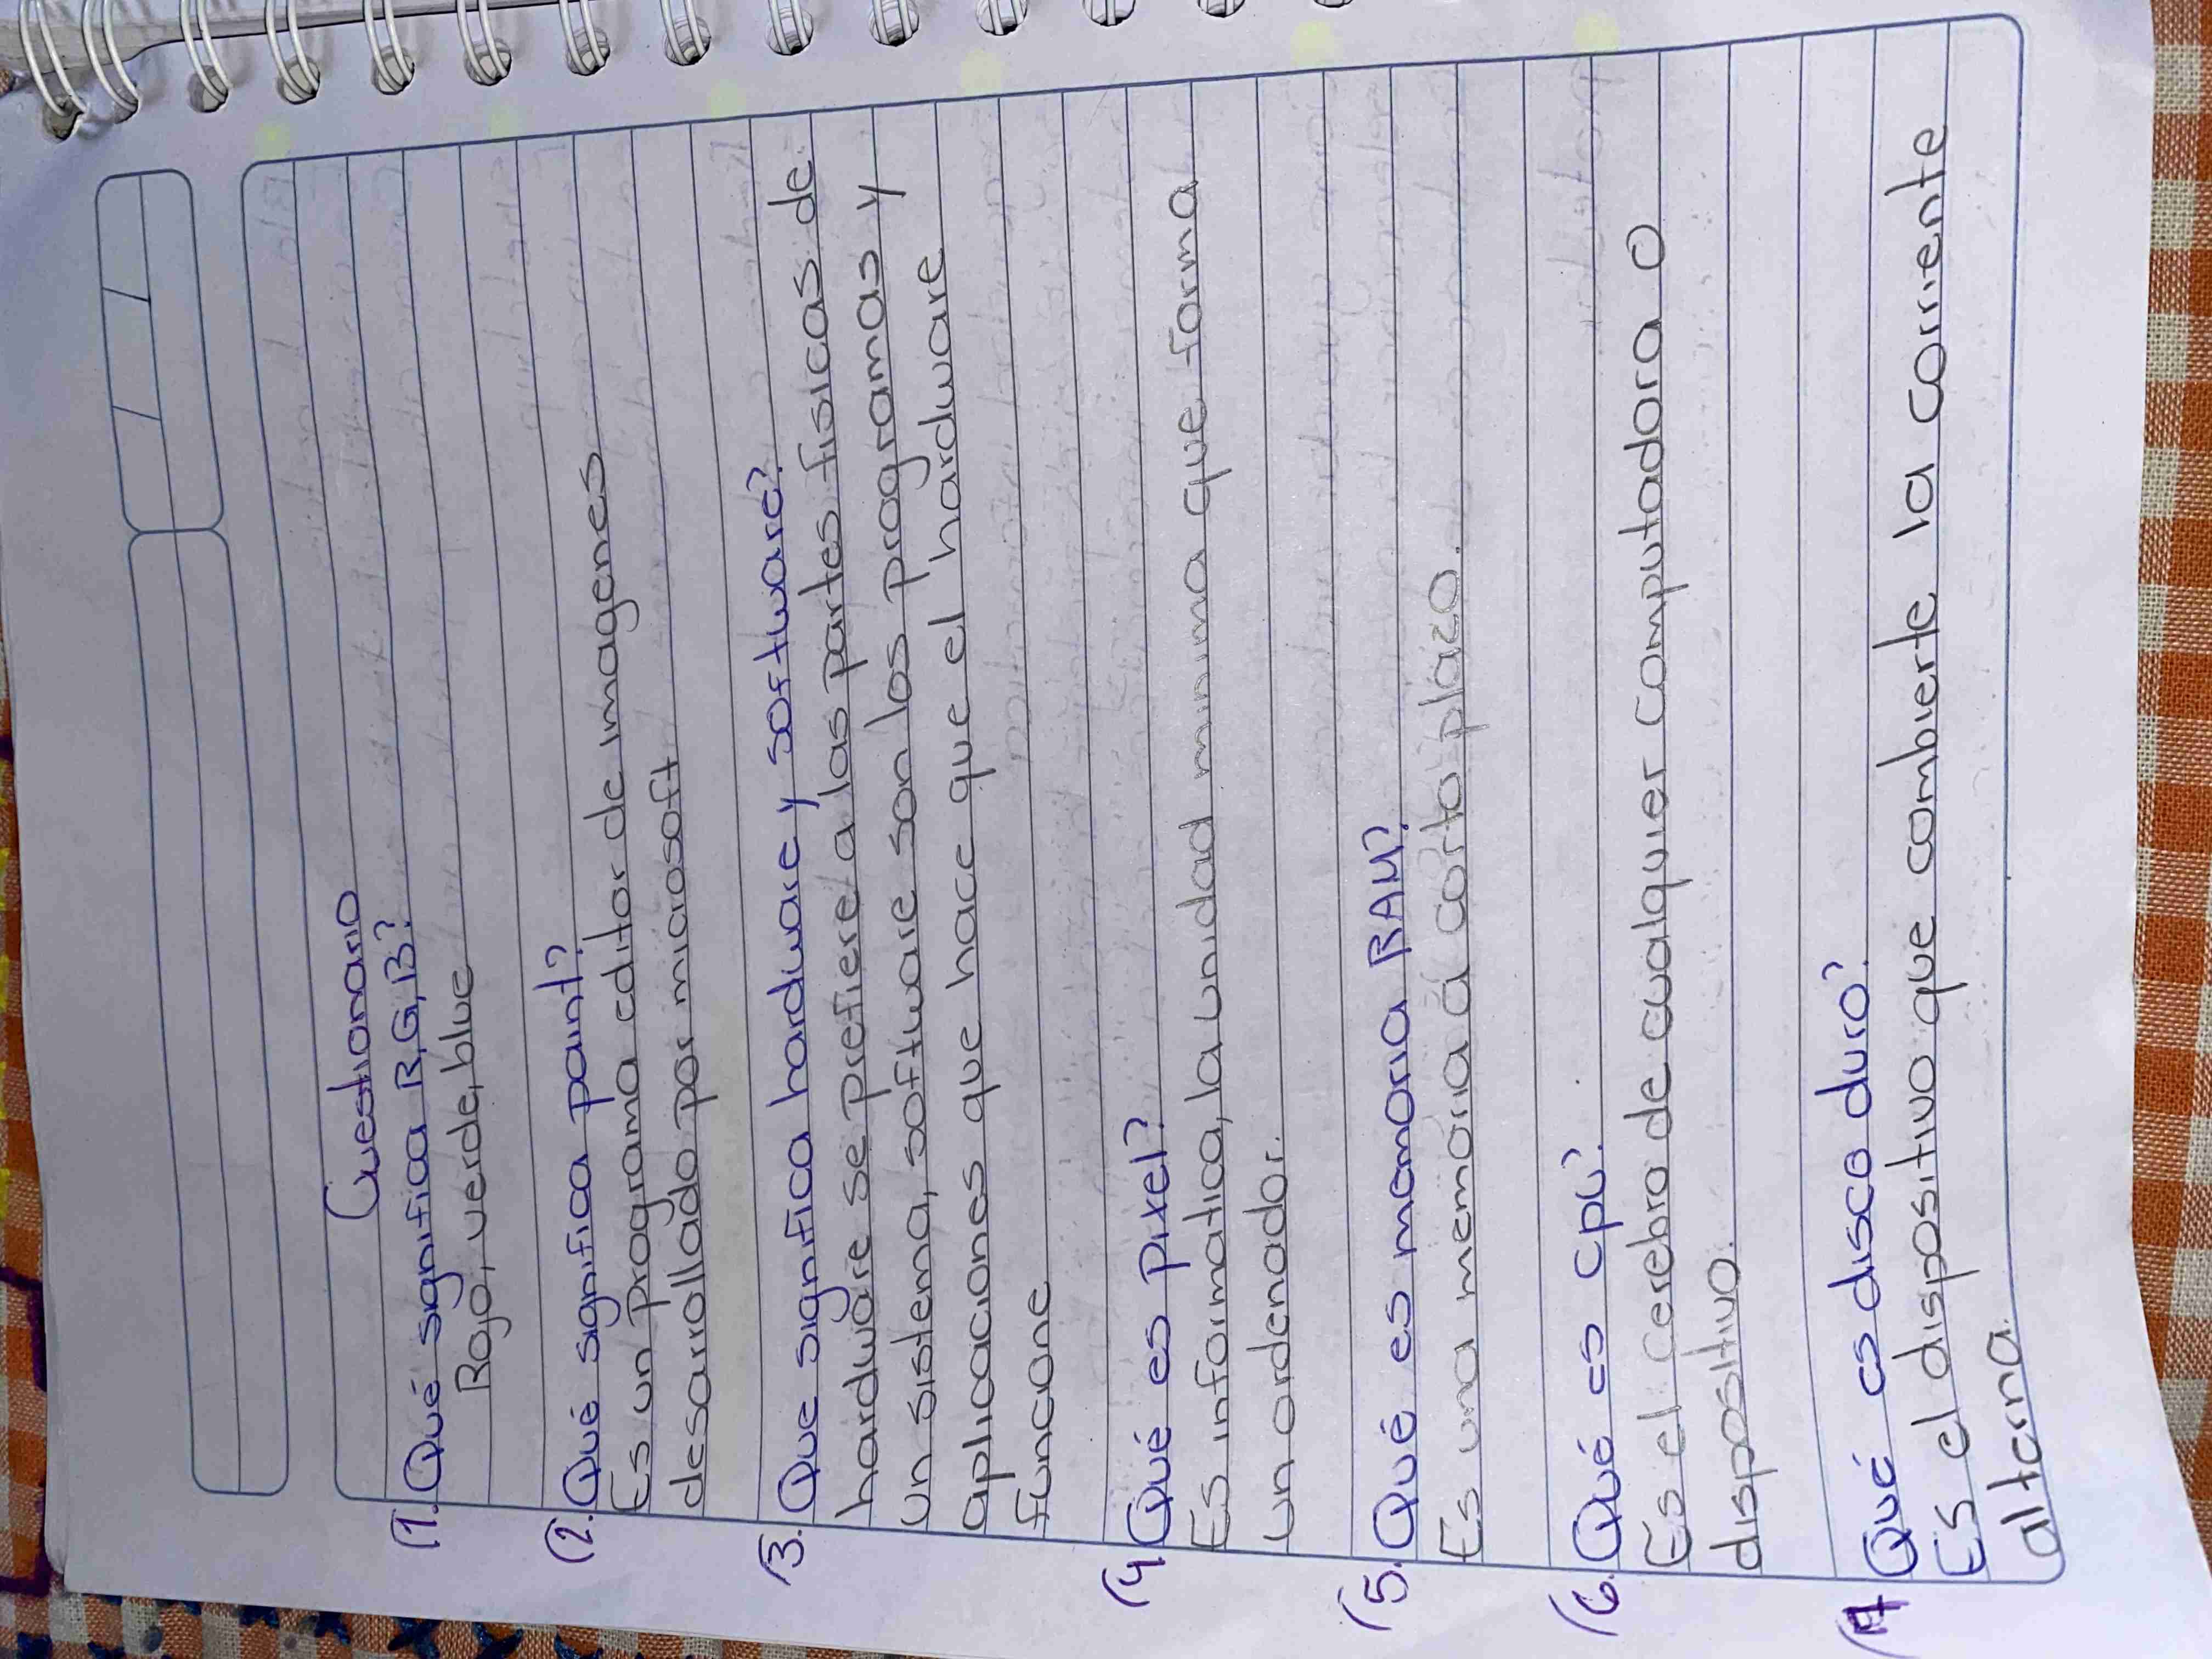 Cuestionario
(1. Qué significa R,G,B?
Rojo, verde, blue
(2. Qué significa paint?
Es un programa editor de imagenes
desarrollado por microsoft
(3. Que significa hardware y software?
hardware se prefiere a las partes fisicas de
un sistema, software son los programas y
aplicaciones que hace que el hardware
funcione
(4 Qué es pixel?
Es informatica, la unidad minima que forma
un ordenador.
(5. Qué es memoria RAM?
Es una memoria a corto plazo.
(6. Qué es cpu?
Es el cerebro de cualquier computadora o
dispositivo.
(7 Qué es disco duro?
Es el dispositivo que combierte la corriente
alterna.